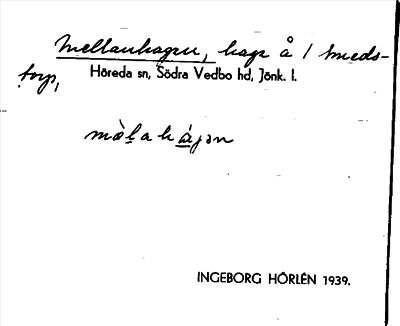 Mellanhagen, hage å 1 Smeds-
torp,
Höreda sn, Södra Vedbo hd, Jönk. l.
INGEBORG HÖRLÉN 1939.